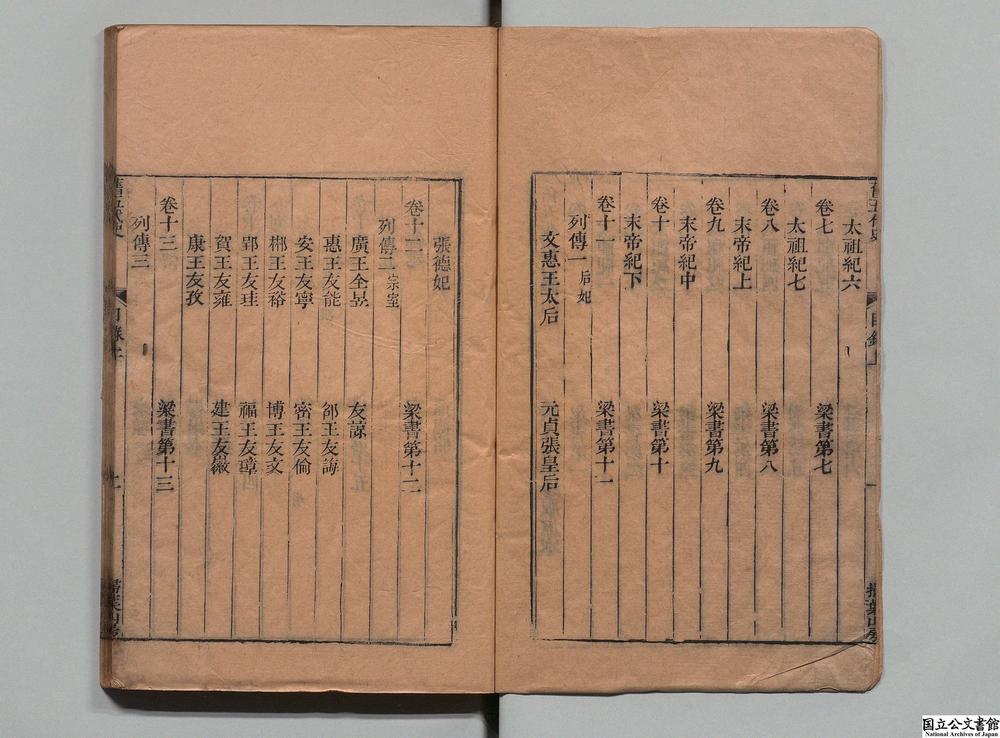 太祖紀六
卷七 梁書第七
太祖紀七
卷八 梁書第八
末帝紀上
卷九 梁書第九
末帝紀中
卷十 梁書第十
末帝紀下
卷十一 梁書第十一
列傳一 后妃
文惠王太后 元貞張皇后
張德妃
卷十二 梁書第十二
列傳二 宗室
廣王全昱 友諒
惠王友能 邵王友誨
安王友寧 密王友倫
郴王友裕 博王友文
郢王友珪 福王友璋
賀王友雍 建王友徽
康王友孜
卷十三 梁書第十三
列傳三
目錄上
掃葉山房
国立公文書館
National Archives of Japan